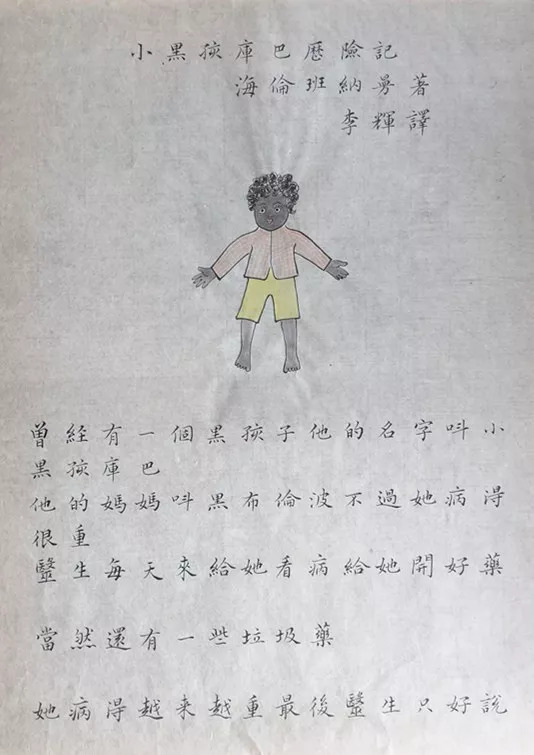 小黑孩庫巴歷險記
海倫班納曼著
李輝譯
曾経有一個黑孩子他的名字呌小
黑孩庫巴
他的媽媽呌黑布倫波不過她病得
很重
毉生每天來給她看病給她開好藥
當然還有一些垃圾藥
她病得越来越重最後毉生只好說